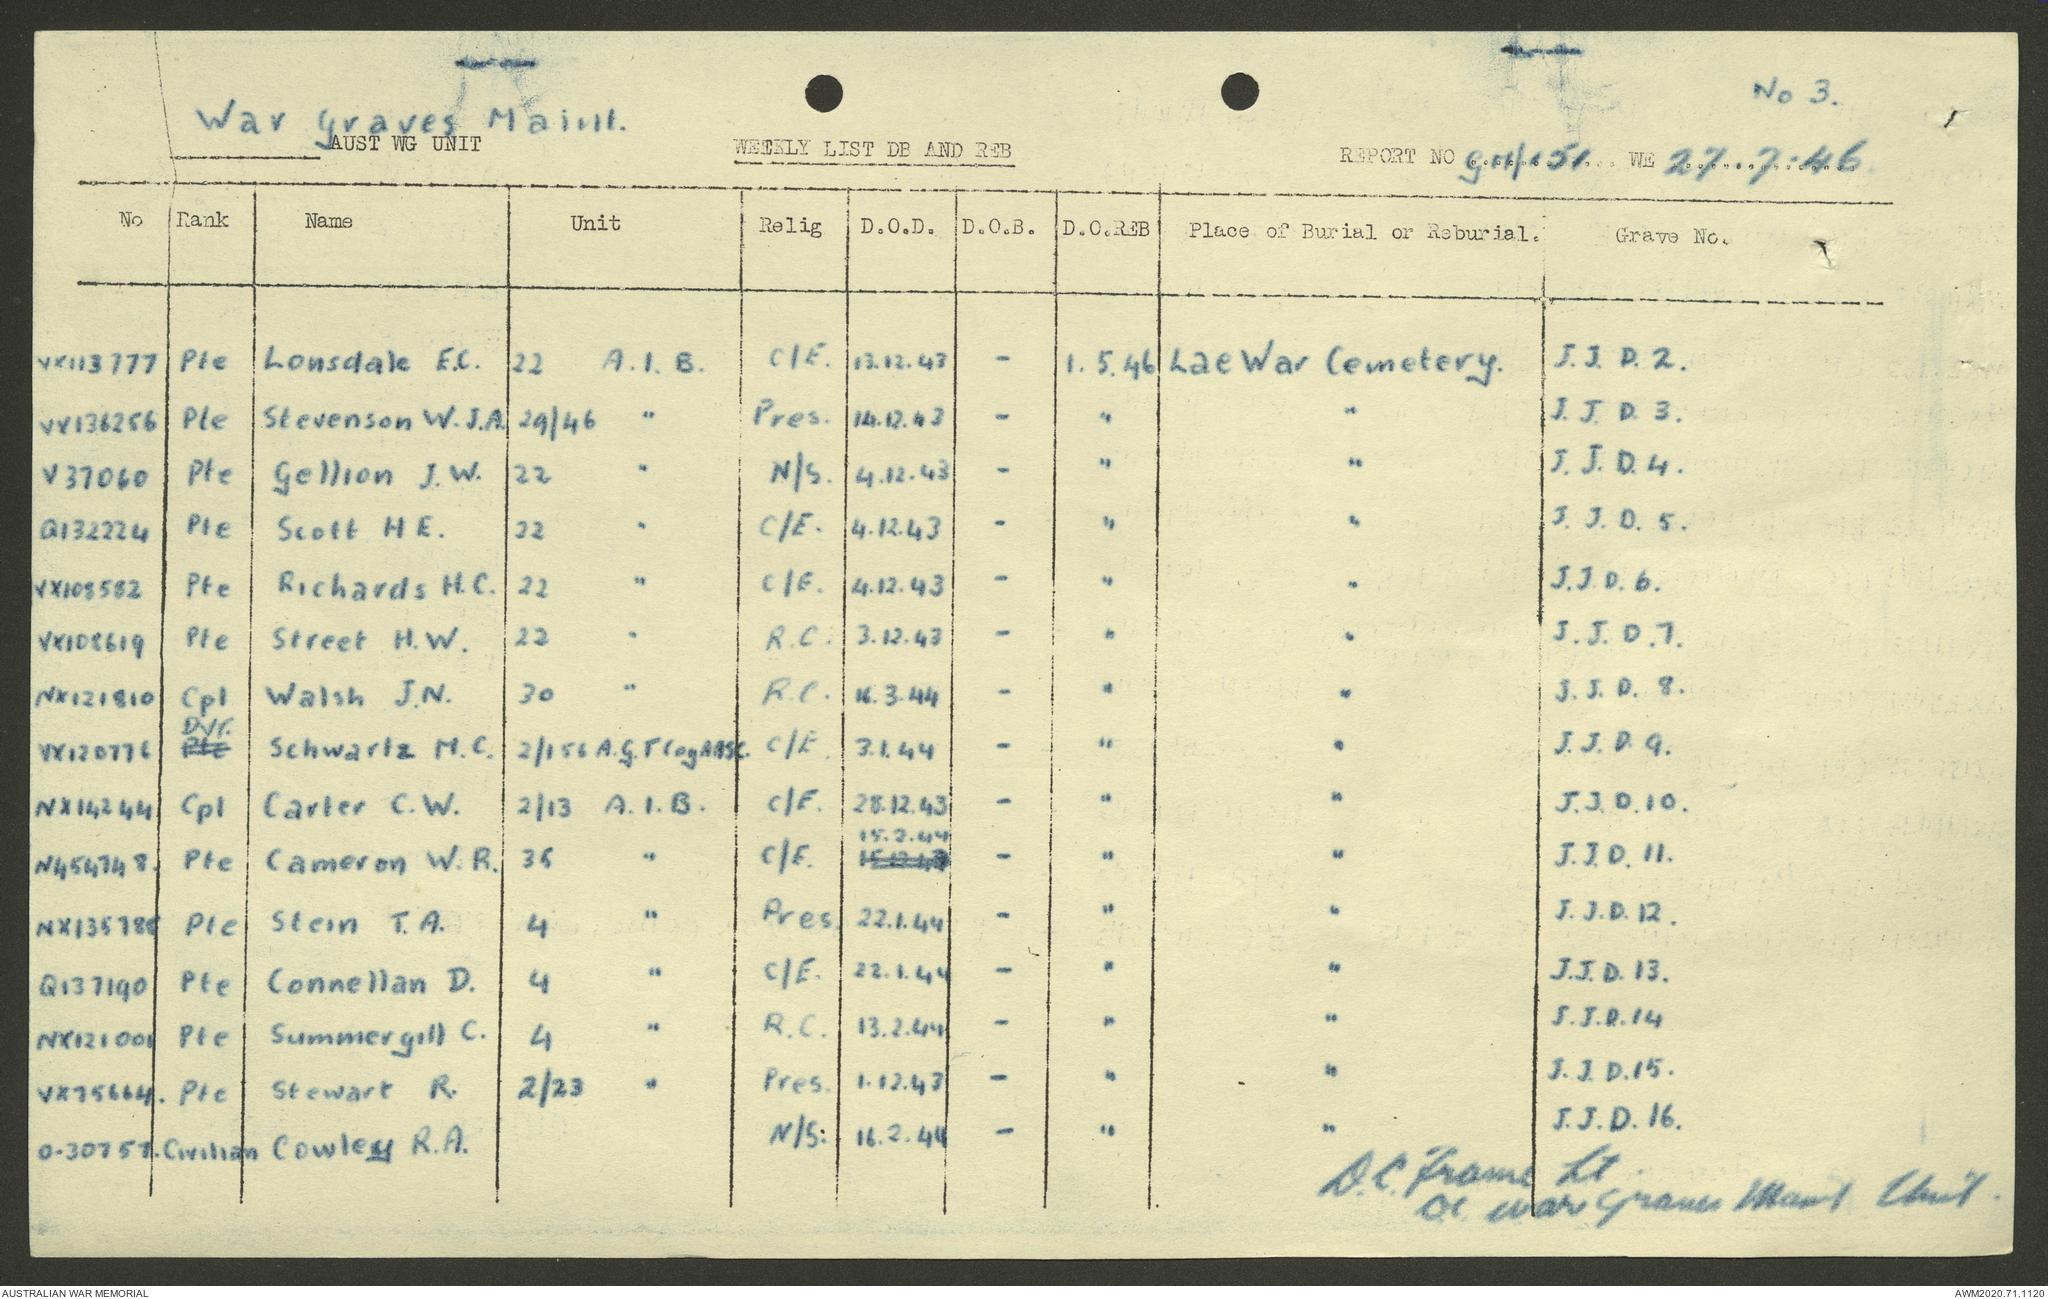 No 3.
War Graves Maint.
AUST WG UNIT WEEKLY LIST DB AND REB REPORT NO G11/151 WE 27.7.46
No Rank Name Unit Relig D.O.D. D.O.B. D.O.REB Place of Burial or Reburial. Grave No.
VX113777 Pte Lonsdale E.C. 22 A.I.B. C/E. 13.12.43 - 1.5.46 Lae War Cemetery. J.J.D.2.
VX136256 Pte Stevenson W.J.A. 29/46 " Pres. 14.12.43 - " " J.J.D.3.
V37060 Pte Gellion J.W. 22 " N/S. 4.12.43 - " " J.J.D.4.
Q132224 Pte Scott H E. 22 " C/E. 4.12.43 - " " J.J.D.5.
VX108582 Pte Richards H.C. 22 " C/E. 4.12.43 - " " J.J.D.6.
VX108619 Pte Street H.W. 22 " R.C. 3.12.43 - " " J.J.D.7.
NX121810 Cpl Walsh J.N. 30 " R.C. 16.3.44 - " " J.J.D.8.
Dvr.
VX120776 Pte Schwartz M.C. 2/156 A.G.T Coy AASC. C/E. 3.1.44 - " " J.J.D.9.
NX14244 Cpl Carter C.W. 2/13 A.I.B. C/E. 28.12.43 - " " J.J.D.10.
15.2.44
N454748. Pte Cameron W.R. 35 " C/E. 15.12.43 - " " J.J.D.11.
NX135788 Pte Stein T.A. 4 " Pres. 22.1.44 - " " J.J.D.12.
Q137190 Pte Connellan D. 4 " C/E. 22.1.44 - " " J.J.D.13.
NX121001 Pte Summergill C. 4 " R.C. 13.2.44 - " " J.J.D.14
VX75664. Pte Stewart R. 2/23 " Pres. 1.12.43 - " " J.J.D.15.
0-30757. Civilian Cowley R.A. N/S. 16.2.44 - " " J.J.D.16.
D.C. Frame Lt.
OC. War Graves Maint Unit.
AUSTRALIAN WAR MEMORIAL AWM2020.71.1120